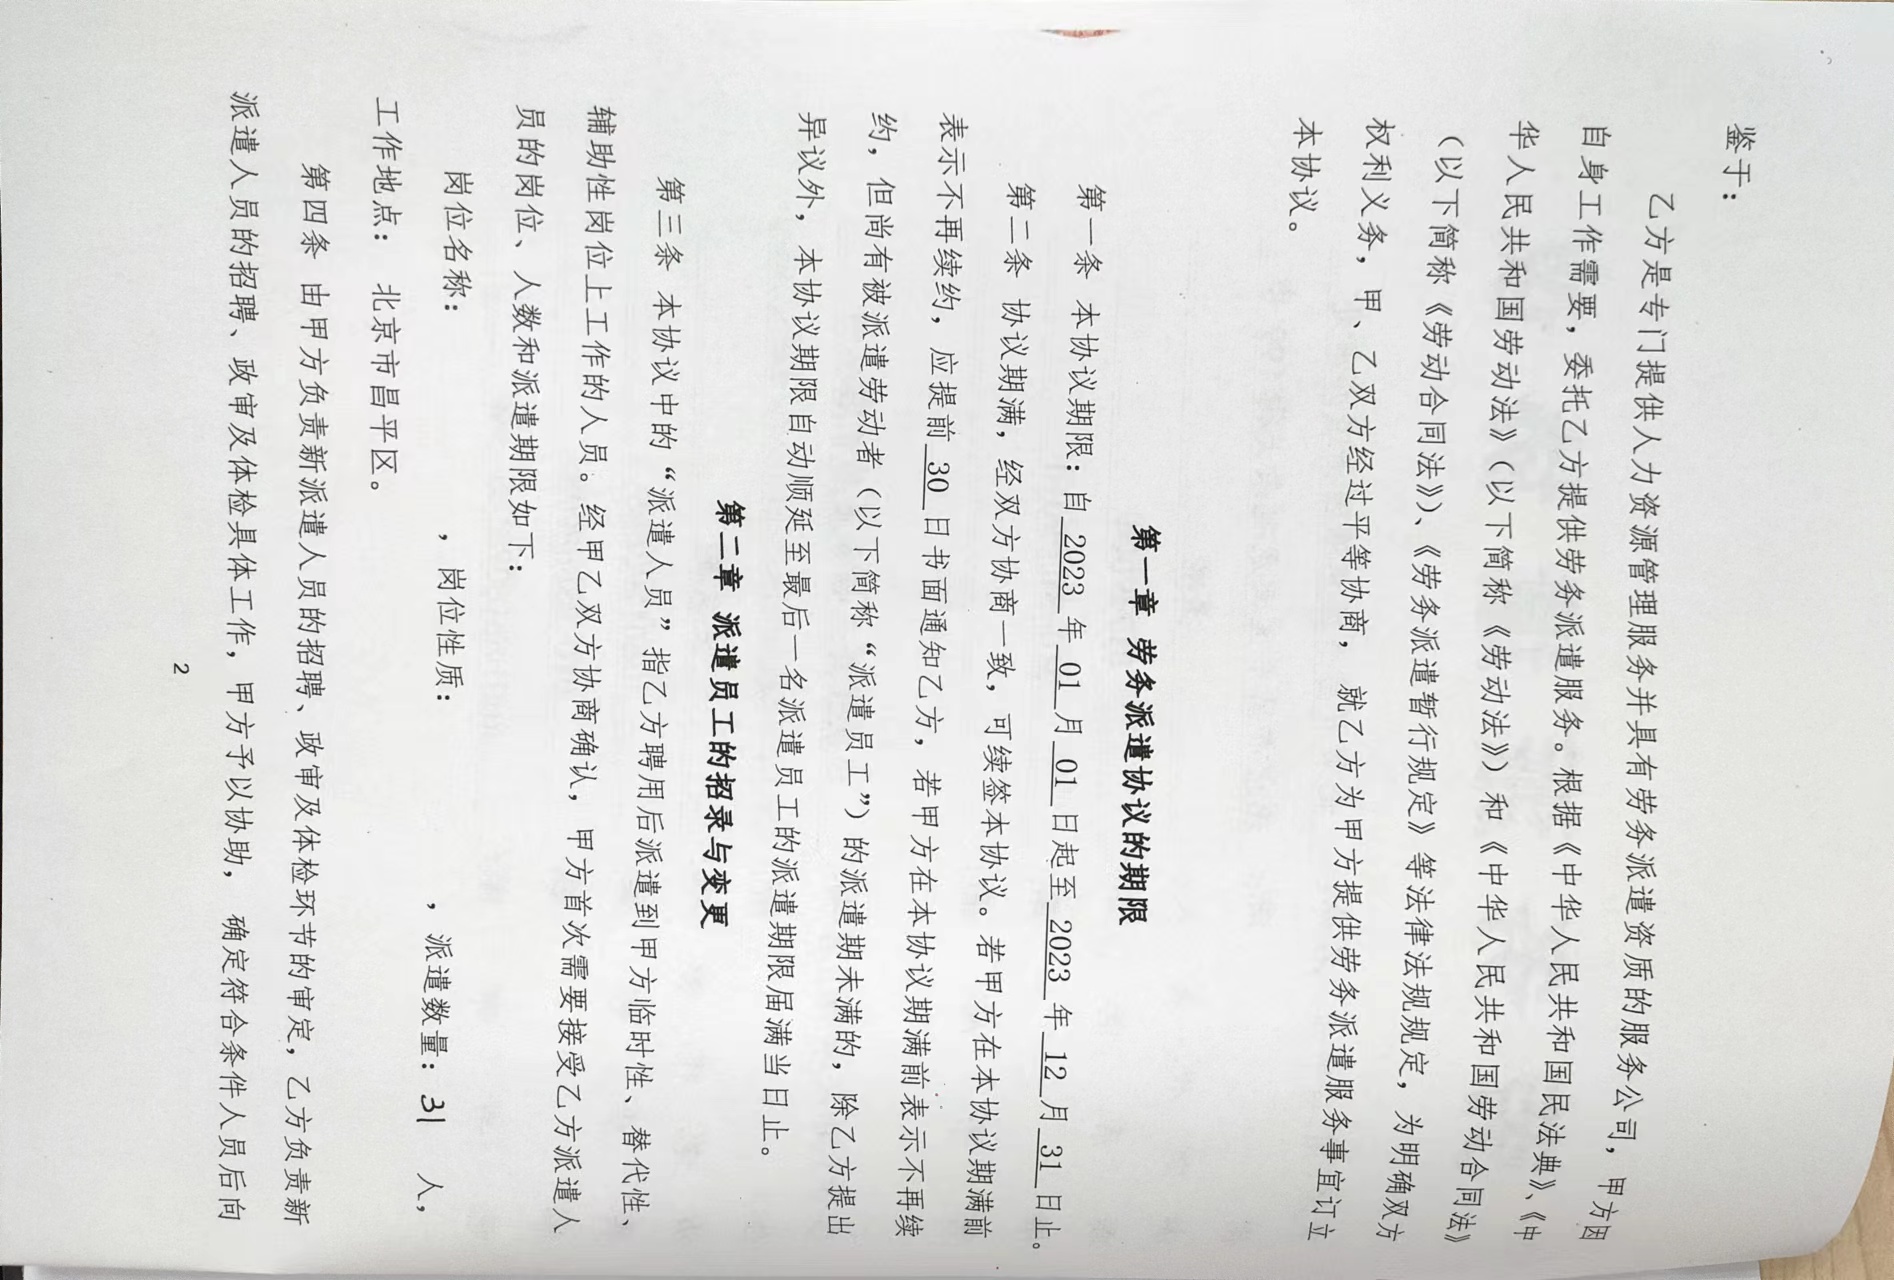 鉴于：
乙方是专门提供人力资源管理服务并具有劳务派遣资质的服务公司，甲方因
自身工作需要，委托乙方提供劳务派遣服务。根据《中华人民共和国民法典》、《中
华人民共和国劳动法》（以下简称《劳动法》）和《中华人民共和国劳动合同法》
（以下简称《劳动合同法》）、《劳务派遣暂行规定》等法律法规规定，为明确双方
权利义务，甲、乙双方经过平等协商，就乙方为甲方提供劳务派遣服务事宜订立
本协议。
第一章 劳务派遣协议的期限
第一条 本协议期限：自 2023 年 01 月 01 日起至 2023 年 12 月 31 日止。
第二条 协议期满，经双方协商一致，可续签本协议。若甲方在本协议期满前
表示不再续约，应提前 30 日书面通知乙方，若甲方在本协议期满前表示不再续
约，但尚有被派遣劳动者（以下简称“派遣员工”）的派遣期未满的，除乙方提出
异议外，本协议期限自动顺延至最后一名派遣员工的派遣期限届满当日止。
第二章 派遣员工的招录与变更
第三条 本协议中的“派遣人员”指乙方聘用后派遣到甲方临时性、替代性、
辅助性岗位上工作的人员。经甲乙双方协商确认，甲方首次需要接受乙方派遣人
员的岗位、人数和派遣期限如下：
岗位名称： ，岗位性质： ，派遣数量：31 人，
工作地点： 北京市昌平区。
第四条 由甲方负责新派遣人员的招聘、政审及体检环节的审定，乙方负责新
派遣人员的招聘、政审及体检具体工作，甲方予以协助，确定符合条件人员后向
2